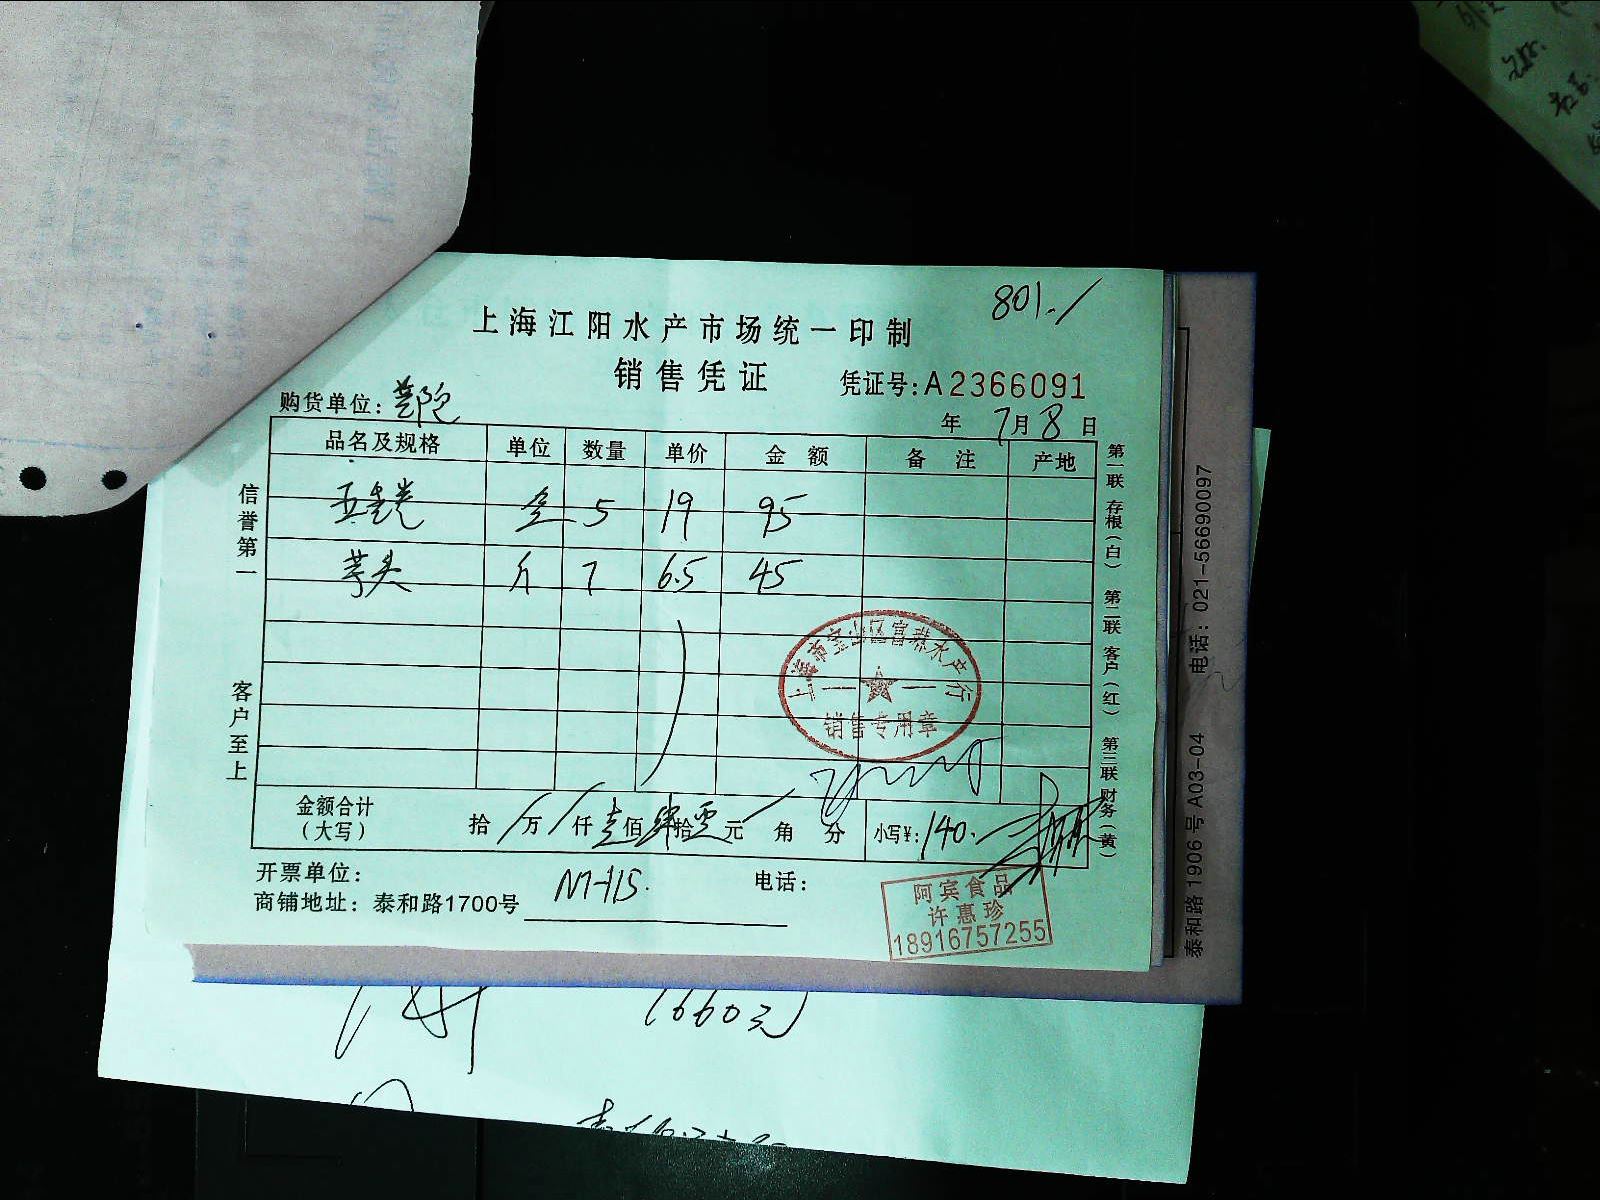 801./
上海江阳水产市场统一印制
销售凭证
凭证号:A2366091
购货单位:
年 7月8日
品名及规格 单位 数量 单价 金额 备注 产地
5 19 95
芋头 斤 7 6.5 45
信誉第一
客户至上
第一联 存根(白) 第二联 客户(红) 第三联 财务(黄)
上海市宝山区富恭水产行
销售专用章
金额合计
(大写)
拾 万 仟 壹佰 肆拾 零元 角 分 小写¥:140.
开票单位:
商铺地址:泰和路1700号
电话:
阿宾食品
许惠珍
18916757255
泰和路 1906 号 A03-04 电话:021-56690097
1660元